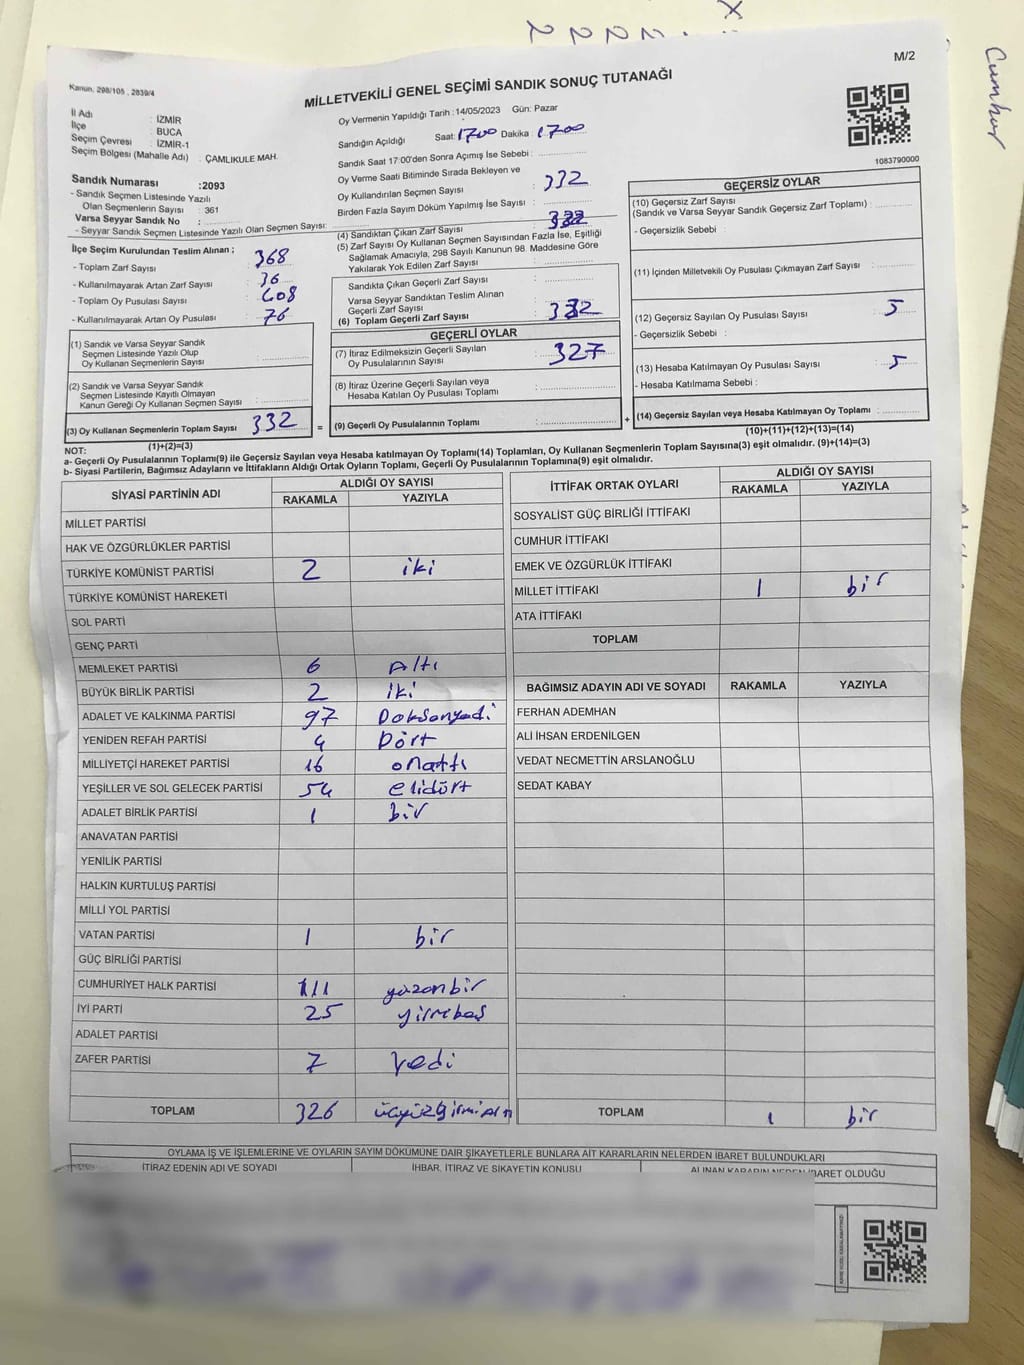 Cumhur
M/2
Kanun, 298/105 , 2839/4
MİLLETVEKİLİ GENEL SEÇİMİ SANDIK SONUÇ TUTANAĞI
İl Adı : İZMİR
İlçe : BUCA
Seçim Çevresi : İZMİR-1
Seçim Bölgesi (Mahalle Adı) : ÇAMLIKULE MAH.
Sandık Numarası :2093
- Sandık Seçmen Listesinde Yazılı
Olan Seçmenlerin Sayısı : 361
Varsa Seyyar Sandık No :
- Seyyar Sandık Seçmen Listesinde Yazılı Olan Seçmen Sayısı:
Oy Vermenin Yapıldığı Tarih : 14/05/2023 Gün: Pazar
Sandığın Açıldığı Saat: 1700 Dakika : 1700
Sandık Saat 17:00'den Sonra Açımış İse Sebebi :
Oy Verme Saati Bitiminde Sırada Bekleyen ve
Oy Kullandırılan Seçmen Sayısı : 332
Birden Fazla Sayım Döküm Yapılmış İse Sayısı :
1083790000
İlçe Seçim Kurulundan Teslim Alınan ;
- Toplam Zarf Sayısı : 368
- Kullanılmayarak Artan Zarf Sayısı : 36
- Toplam Oy Pusulası Sayısı : 608
- Kullanılmayarak Artan Oy Pusulası : 76
(1) Sandık ve Varsa Seyyar Sandık
Seçmen Listesinde Yazılı Olup
Oy Kullanan Seçmenlerin Sayısı :
(2) Sandık ve Varsa Seyyar Sandık
Seçmen Listesinde Kayıtlı Olmayan
Kanun Gereği Oy Kullanan Seçmen Sayısı :
(3) Oy Kullanan Seçmenlerin Toplam Sayısı : 332
(1)+(2)=(3)
(4) Sandıktan Çıkan Zarf Sayısı : 332
(5) Zarf Sayısı Oy Kullanan Seçmen Sayısından Fazla İse, Eşitliği
Sağlamak Amacıyla, 298 Sayılı Kanunun 98. Maddesine Göre
Yakılarak Yok Edilen Zarf Sayısı :
Sandıkta Çıkan Geçerli Zarf Sayısı :
Varsa Seyyar Sandıktan Teslim Alınan
Geçerli Zarf Sayısı :
(6) Toplam Geçerli Zarf Sayısı : 332
=
GEÇERLİ OYLAR
(7) İtiraz Edilmeksizin Geçerli Sayılan
Oy Pusulalarının Sayısı : 327
(8) İtiraz Üzerine Geçerli Sayılan veya
Hesaba Katılan Oy Pusulası Toplamı :
(9) Geçerli Oy Pusulalarının Toplamı :
+
GEÇERSİZ OYLAR
(10) Geçersiz Zarf Sayısı
(Sandık ve Varsa Seyyar Sandık Geçersiz Zarf Toplamı) :
- Geçersizlik Sebebi :
(11) İçinden Milletvekili Oy Pusulası Çıkmayan Zarf Sayısı :
(12) Geçersiz Sayılan Oy Pusulası Sayısı : 5
- Geçersizlik Sebebi :
(13) Hesaba Katılmayan Oy Pusulası Sayısı : 5
- Hesaba Katılmama Sebebi :
(14) Geçersiz Sayılan veya Hesaba Katılmayan Oy Toplamı :
(10)+(11)+(12)+(13)=(14)
NOT:
a- Geçerli Oy Pusulalarının Toplamı(9) ile Geçersiz Sayılan veya Hesaba katılmayan Oy Toplamı(14) Toplamları, Oy Kullanan Seçmenlerin Toplam Sayısına(3) eşit olmalıdır. (9)+(14)=(3)
b- Siyasi Partilerin, Bağımsız Adayların ve İttifakların Aldığı Ortak Oyların Toplamı, Geçerli Oy Pusulalarının Toplamına(9) eşit olmalıdır.
SİYASİ PARTİNİN ADI ALDIĞI OY SAYISI
RAKAMLA YAZIYLA
MİLLET PARTİSİ
HAK VE ÖZGÜRLÜKLER PARTİSİ
TÜRKİYE KOMÜNİST PARTİSİ 2 iki
TÜRKİYE KOMÜNİST HAREKETİ
SOL PARTİ
GENÇ PARTİ
MEMLEKET PARTİSİ 6 Altı
BÜYÜK BİRLİK PARTİSİ 2 iki
ADALET VE KALKINMA PARTİSİ 97 Doksanyedi
YENİDEN REFAH PARTİSİ 4 Dört
MİLLİYETÇİ HAREKET PARTİSİ 16 onaltı
YEŞİLLER VE SOL GELECEK PARTİSİ 54 elidört
ADALET BİRLİK PARTİSİ 1 bir
ANAVATAN PARTİSİ
YENİLİK PARTİSİ
HALKIN KURTULUŞ PARTİSİ
MİLLİ YOL PARTİSİ
VATAN PARTİSİ 1 bir
GÜÇ BİRLİĞİ PARTİSİ
CUMHURİYET HALK PARTİSİ 111 yüzonbir
İYİ PARTİ 25 yirmibeş
ADALET PARTİSİ
ZAFER PARTİSİ 7 Yedi
TOPLAM 326
İTTİFAK ORTAK OYLARI ALDIĞI OY SAYISI
RAKAMLA YAZIYLA
SOSYALİST GÜÇ BİRLİĞİ İTTİFAKI
CUMHUR İTTİFAKI
EMEK VE ÖZGÜRLÜK İTTİFAKI
MİLLET İTTİFAKI 1 bir
ATA İTTİFAKI
TOPLAM
BAĞIMSIZ ADAYIN ADI VE SOYADI RAKAMLA YAZIYLA
FERHAN ADEMHAN
ALİ İHSAN ERDENİLGEN
VEDAT NECMETTİN ARSLANOĞLU
SEDAT KABAY
TOPLAM 1 bir
OYLAMA İŞ VE İŞLEMLERİNE VE OYLARIN SAYIM DÖKÜMÜNE DAİR ŞİKAYETLERLE BUNLARA AİT KARARLARIN NELERDEN İBARET BULUNDUKLARI
İTİRAZ EDENİN ADI VE SOYADI İHBAR, İTİRAZ VE ŞİKAYETİN KONUSU ALINAN KARARIN NEDEN İBARET OLDUĞU